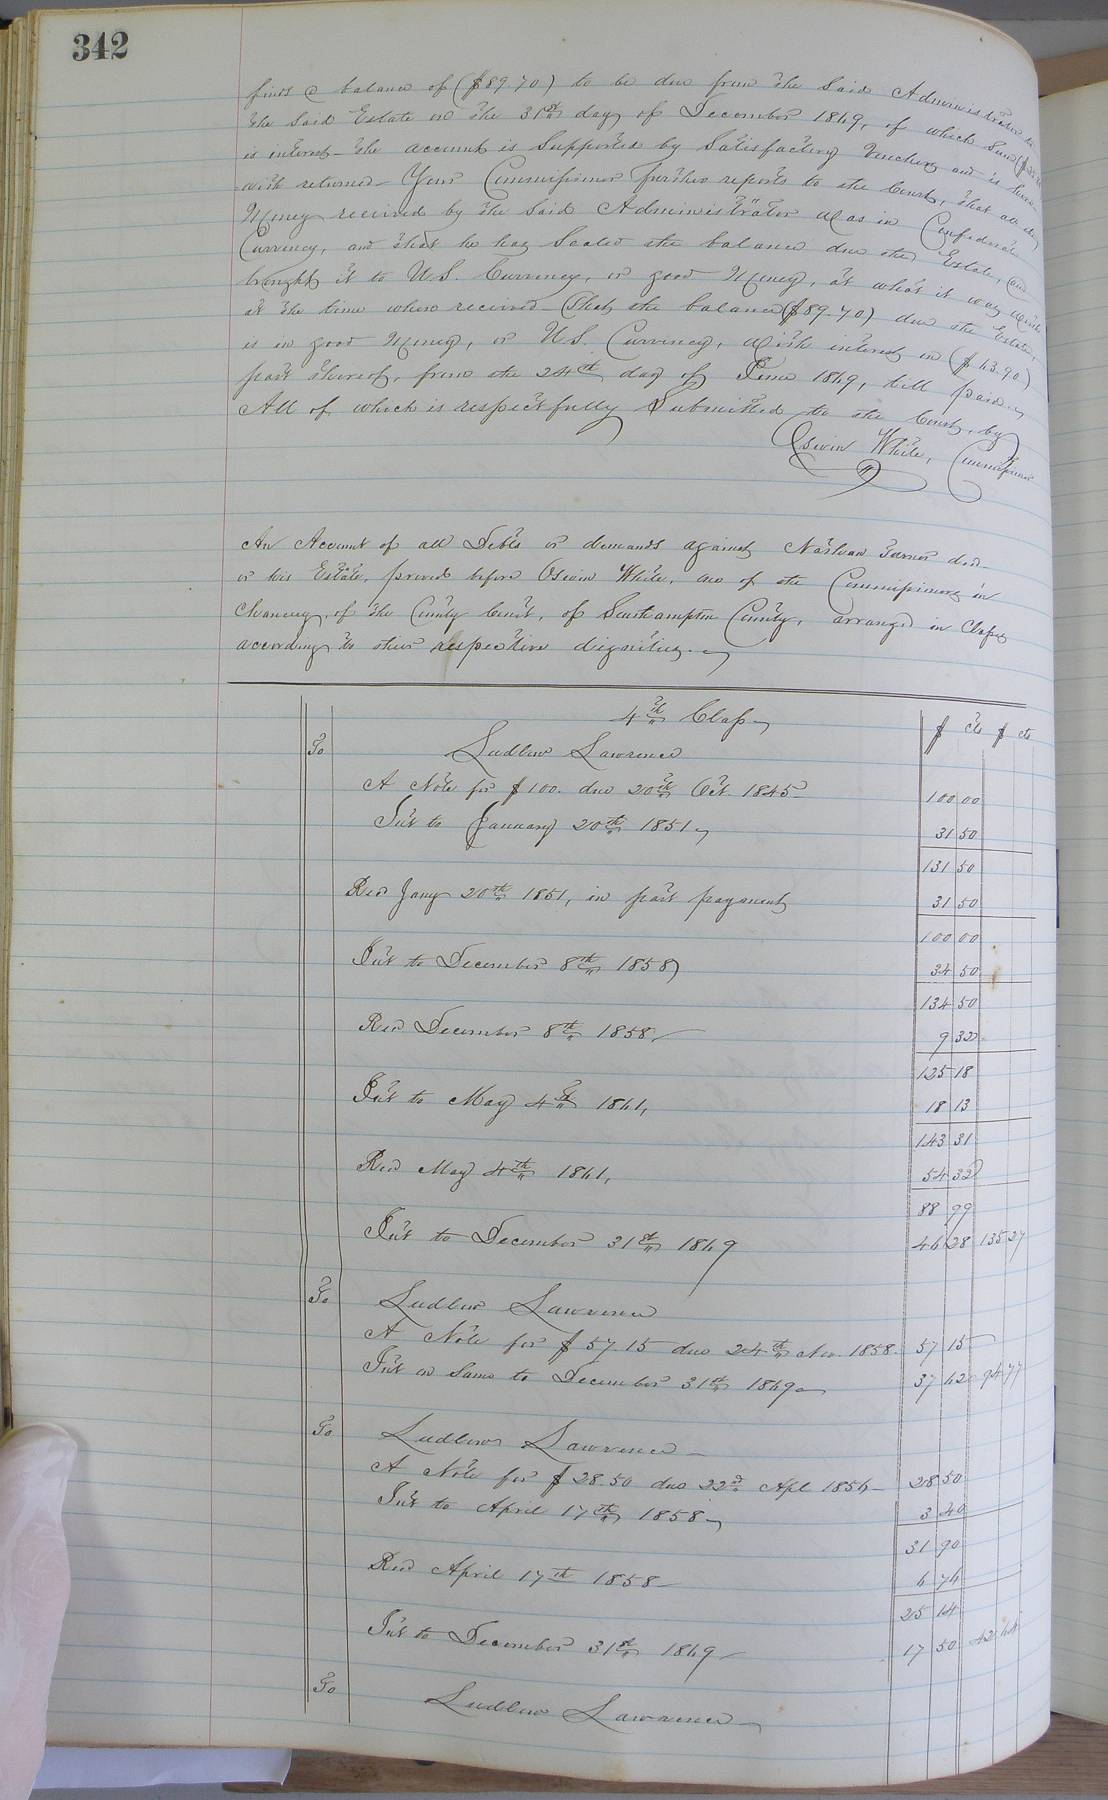 342
finds a balance of ($89.70) to be due from the said Administrator to
the said Estate on the 31st day of December 1869, of which sum
is interest - the account is supported by satisfactory vouchers and is here-
-with returned - Your Commissioner further reports to the Court, that all the
Money received by the said Administrator was in Confederate
Currency, and that he has scaled the balance due the Estate, and
brought it to U.S. Currency, or good Money, at what it was worth
at the time when received - That the balance ($89.70) due the Estate,
is in good Money, or U.S. Currency, with interest on ($63.90)
part thereof, from the 24th day of June 1869, till paid.
All of which is respectfully submitted to the Court, by
Oswin White, Commissioner
An Account of all Debts or demands against Nathan Turner decd
or his Estate, proved before Oswin White, one of the Commissioners in
Chancery, of the County Court, of Southampton County, arranged in Classes
according to their respective dignities.
4th Class
$ cts $ cts
To Ludlow Lawrence
A Note for $100. due 20th Oct. 1845 - 100 00
Int to January 20th 1851 31 50
131 50
Recd Jany 20th 1851, in part payment 31 50
100 00
Int to December 8th 1858 34 50
134 50
Recd December 8th 1858 9 32
125 18
Int to May 4th 1861, 18 13
143 31
Recd May 4th 1861, 54 32
88 99
Int to December 31st 1869 46 28 135 27
To Ludlow Lawrence
A Note for $57.15 due 24th Nov. 1858. 57 15
Int on Same to December 31st 1869 37 62 94 77
To Ludlow Lawrence
A Note for $28.50 due 22d Apl 1856 - 28 50
Int to April 17th 1858 3 40
31 90
Recd April 17th 1858 - 6 76
25 14
Int to December 31st 1869 17 50 42 64
To Ludlow Lawrence